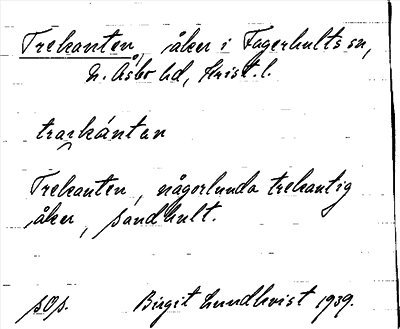 Trekanten, åker i Fagerhults sn,
N. Åsbo hd, Krist. l.
trækántan
Trekanten, någorlunda trekantig
åker, Sandhult.
sOp. Birgit Lundkvist 1939.